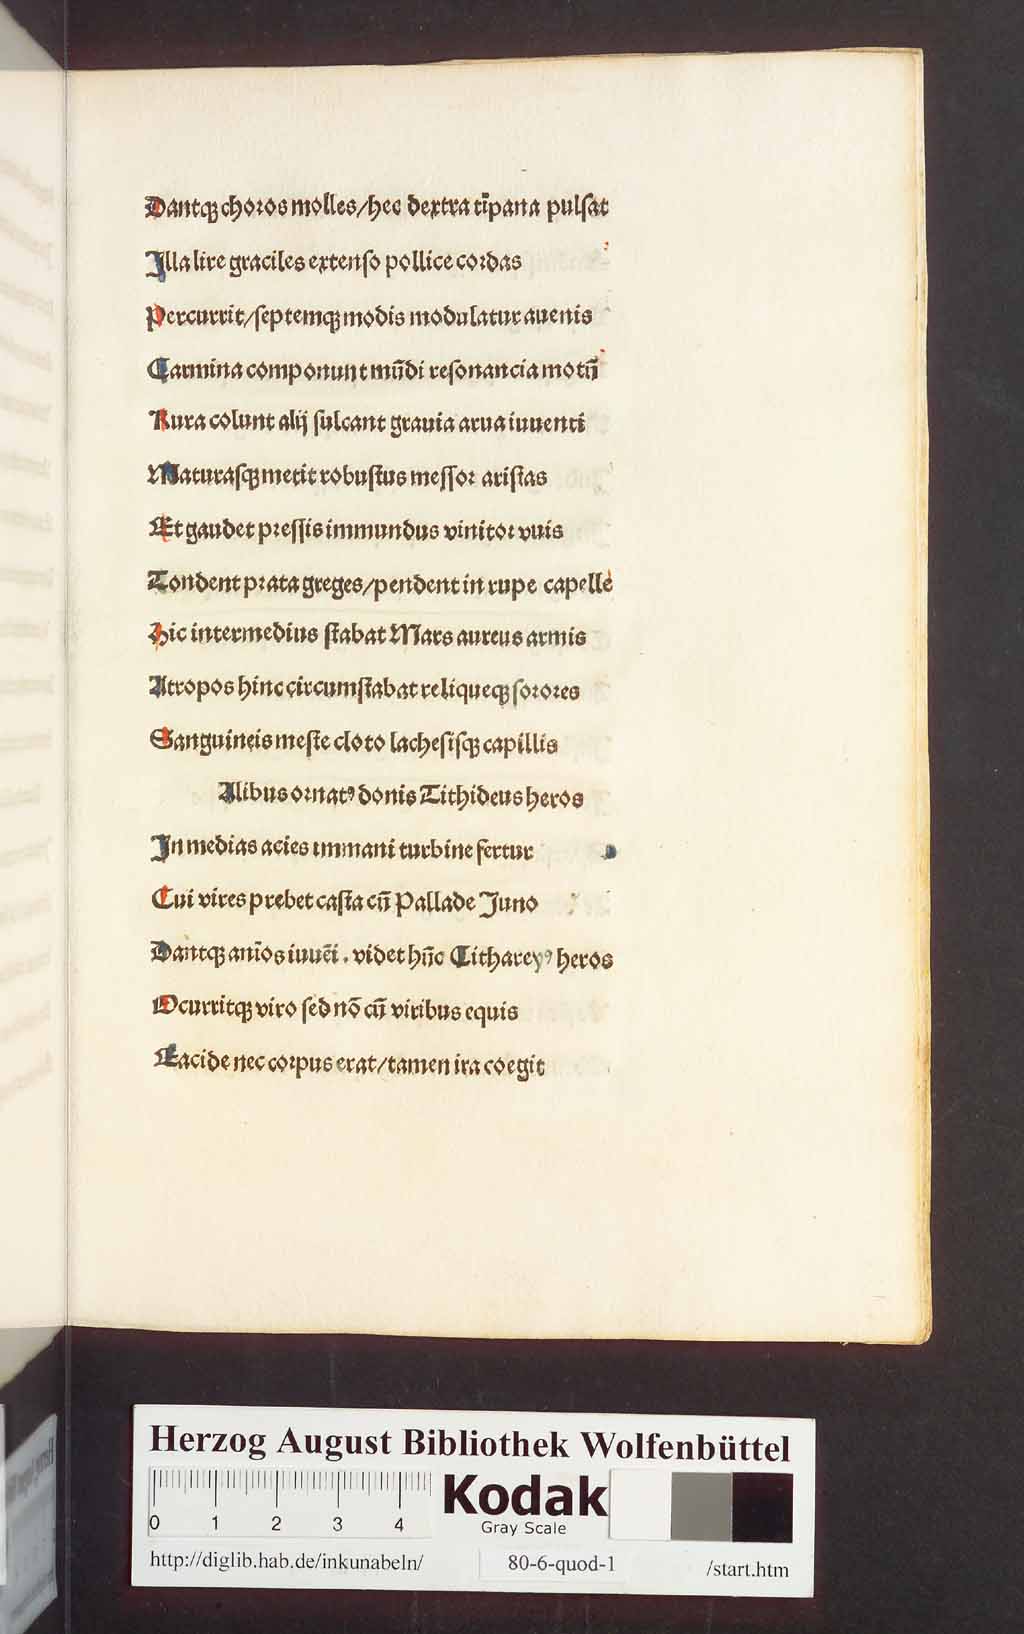 Dantqꝫ choros molles/hec dextra tīpana pulsat
Illa lire graciles extenso pollice cordas
Percurrit/septemqꝫ modis modulatur auenis
Carmina componunt mūdi resonancia motū
Rura colunt alij sulcant grauia arua iuuenci
Maturasqꝫ metit robustus messor aristas
Et gaudet pressis immundus vinitor vuis
Tondent prata greges/pendent in rupe capelle
Hic intermedius stabat Mars aureus armis
Atropos hinc circumstabat reliqueqꝫ sorores
Sanguineis meste cloto lachesisqꝫ capillis
Alibus ornatꝰ donis Tithideus heros
In medias acies immani turbine fertur
Cui vires prebet casta cū Pallade Juno
Dantqꝫ anīos iuuēi . videt hūc Cithareyꝰ heros
Ocurritqꝫ viro sed nō cū viribus equis
Eacide nec corpus erat/tamen ira coegit
Herzog August Bibliothek Wolfenbüttel
0 1 2 3 4
Kodak
Gray Scale
http://diglib.hab.de/inkunabeln/ 80-6-quod-1 /start.htm